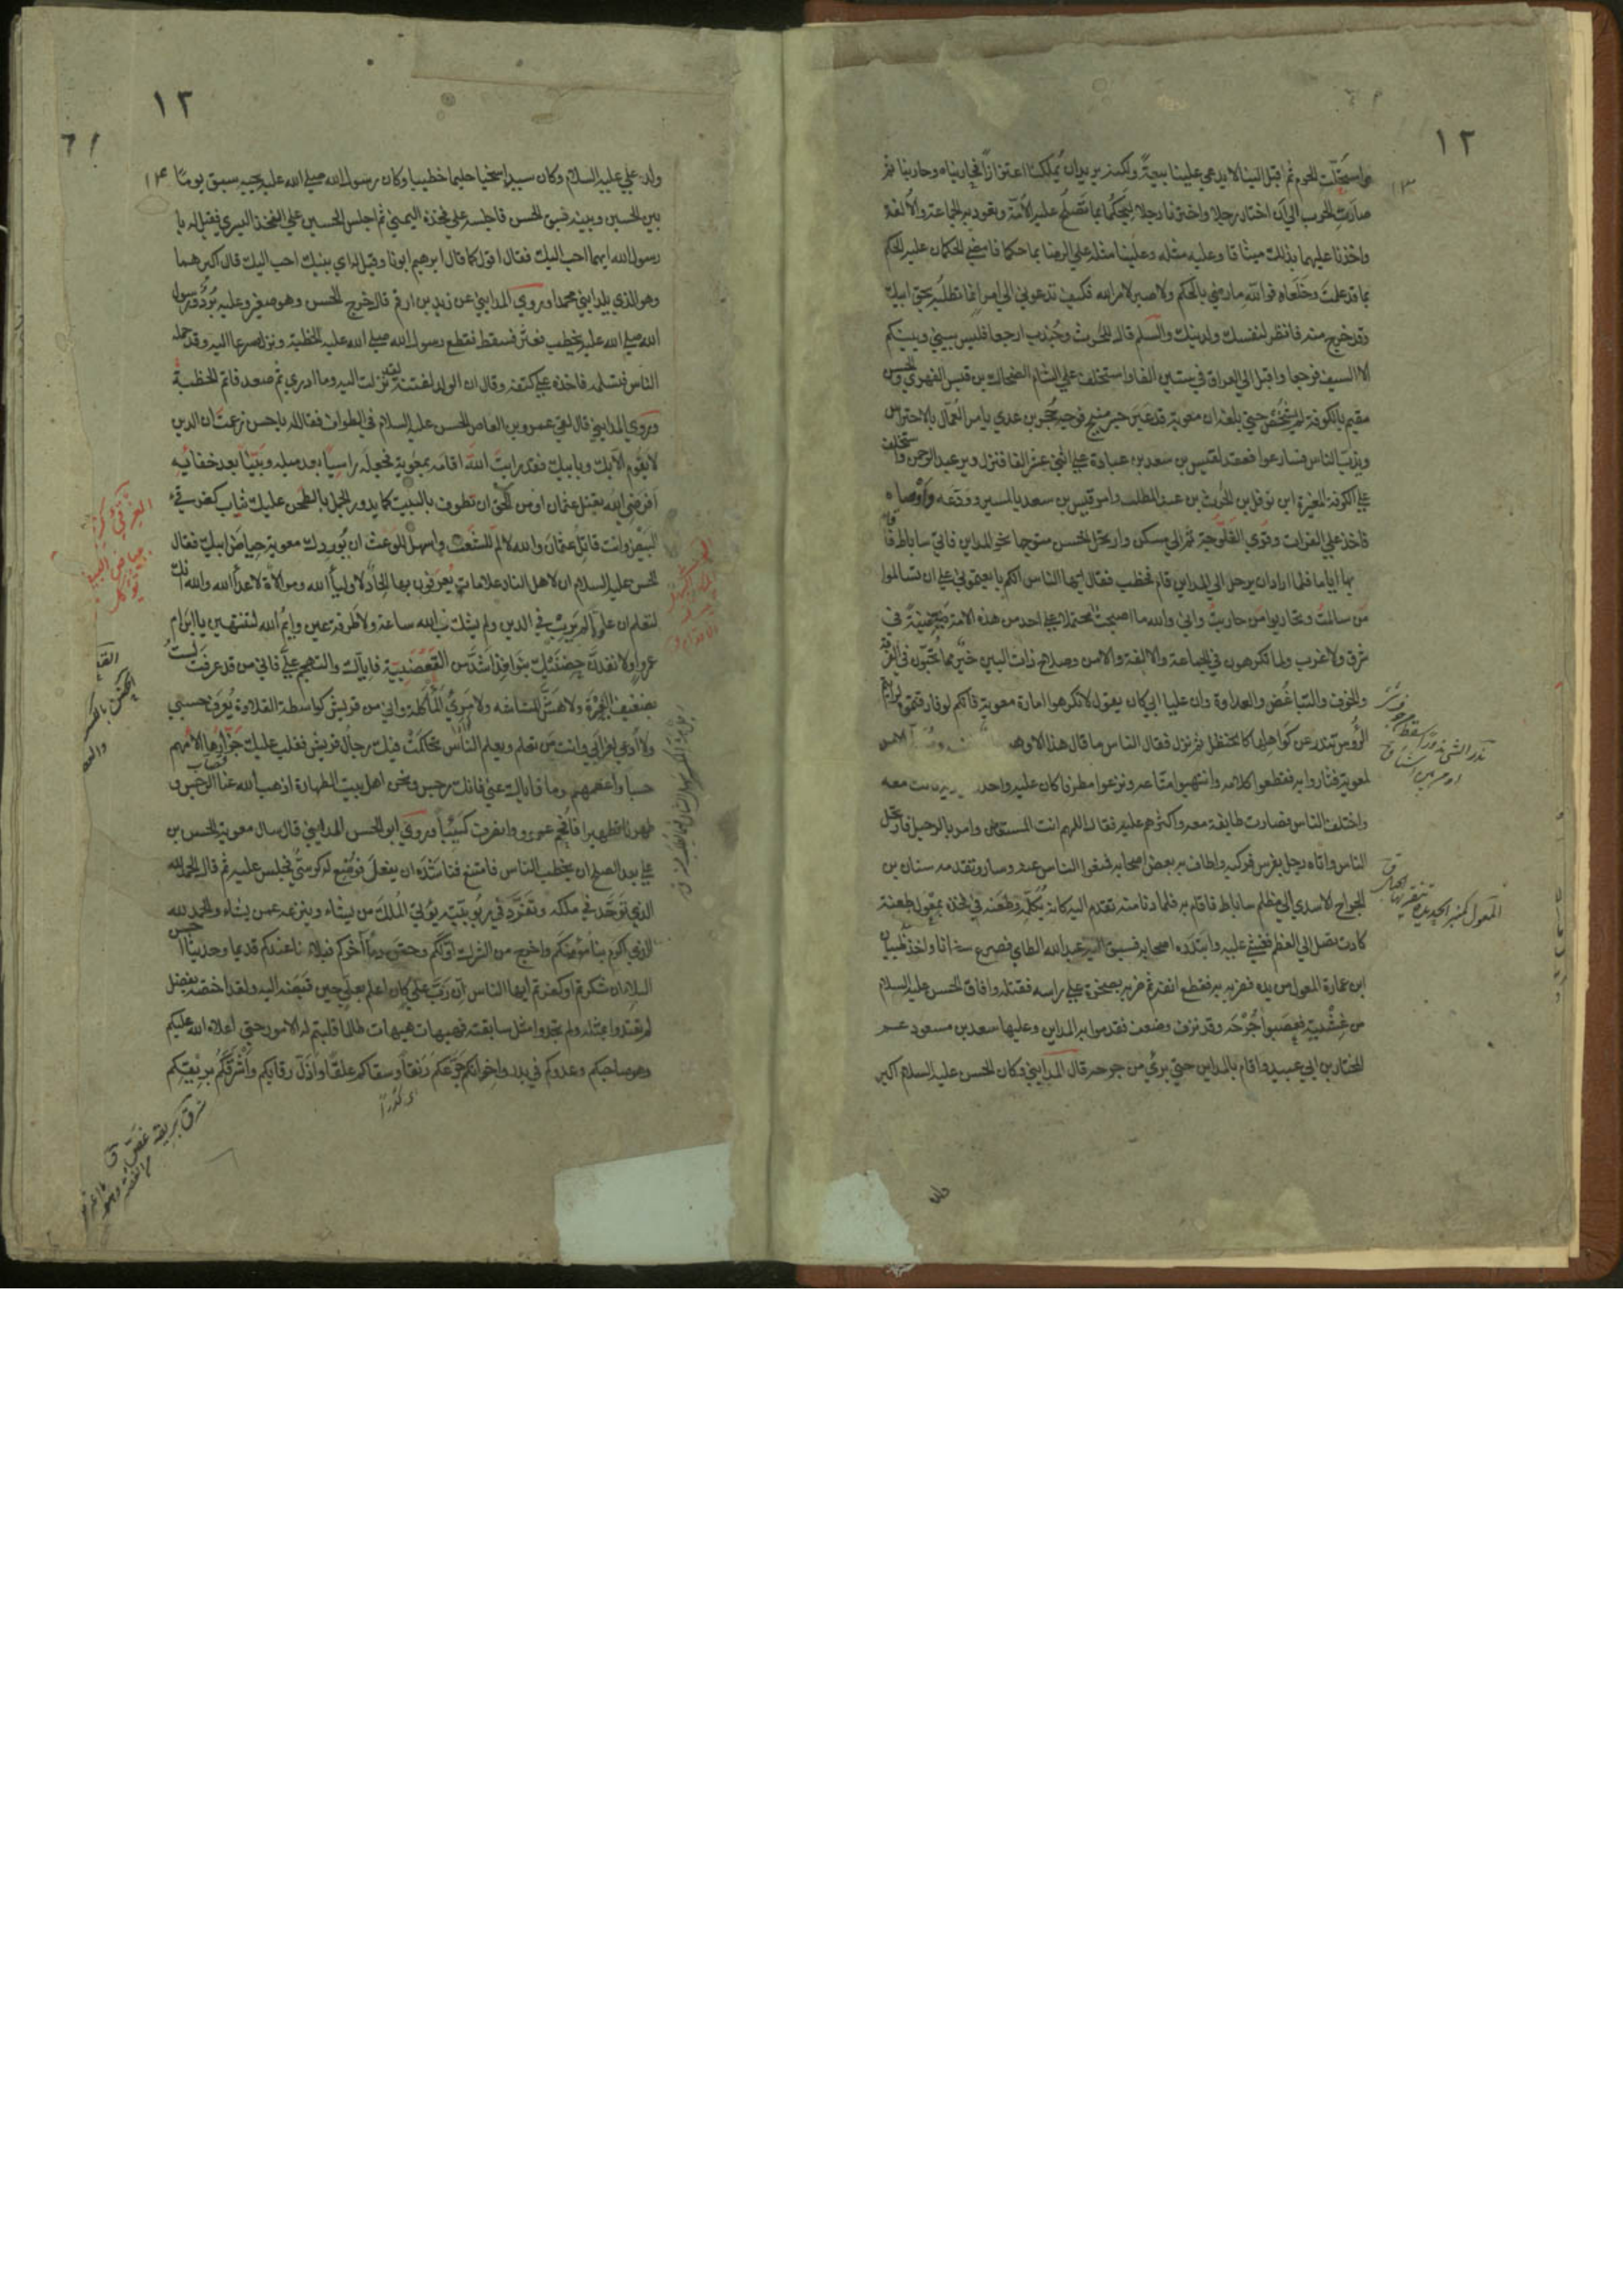 ١٢
١٣
واستحلّت الحرم ثم اقبل الينا لا يدعي علينا بيعةً ولكنه يريد ان يُملكنا اعتزازاً فحاربناه وحاربنا ثم
صارت الحرب الي ان اختار رجلا واخترنا رجلا ليَحكُما بما تَصلُح عليه الاُمّة وتعود به الجماعة والاُلفة
واخذنا عليهما بذلك ميثاقا وعليه مثله وعلينا مثله علي الرضا بما حكما فامضي الحكمان عليه الحكم
بما قد علمتَ وخَلَعاه فوالله ما رضي بالحكم ولا صبر لامر الله فكيف تدعوني الي امرٍ انما تطلُبه بحق ابيك
وقد خرج منه فانظر لنفسك ولدينك والسلم قال للحرث وجُندب ارجعا فليس بيني وبينكم
الا السيف فرجعا واقبل الي العراق في ستين الفا واستخلف علي الشام الضحاك بن قيس الفهري والحسن
مقيم بالكوفة لم يَشخَص حتي بلغه ان معوية قد عَبَر جسر منبج فوجه حُجر بن عدي يامر العُمّال بالاحتراس
ويذبّ الناس فسارعوا فعقد لقيس بن سعد بن عبادة علي اثني عشر الفا فنزل دير عبد الرحمن واستخلف
علي الكوفة المغيرة ابن نوفل بن الحرث بن عبد المطلب وامر قيس بن سعد بالمسير وودّعه وَاَوصاه
فاخذ علي الفرات وقري الفَلّوجَة ثم الي مسكن وارتحل الحسن متوجها نحو المداين فاتي ساباط فاقام
بها اياما فلما اراد ان يرحل الي المداين قام فخطب فقال ايها الناس انكم بايعتموني علي ان تسالموا
مَن سالمتُ وتحاربوا مَن حاربتُ واني والله ما اصبحت محتملا علي احد من هذه الامة ضَغينةً في
شرق ولا غرب ولما تكرهون في الجماعة والالفة والامن وصلاح ذات البين خيرٌ مما تُحبّون في الفرقة
والخوف والتباغُض والعداوة وان عليا ابي كان يقول لا تكرهوا امارة معوية فانكم لو فارقتموه لرايتم
الرُؤُس تَندر عن كَواهِلها كالحنظل ثم نزل فقال الناس ما قال هذا
لمعوية فثاروا به فقطعوا كلامه وانتهبوا متاعه ونزعوا مطرفا كان عليه واخذ
واختلف الناس فصارت طايفة معه واكثرهم عليه فقال اللهم انت المستعان وامر بالرحيل فارتحل
الناس واتاه رجل بفرس فركبه واطاف به بعض اصحابه فمنعوا الناس عنه وساروا فقدمه سنان بن
الجراح الاسدي الي مظلم ساباط فاقام به فلما دنا منه تقدم اليه كانه يُكلّمه وطعنه في فخذه بمِعول طعنة
كادت يصل الي العظم فغشي عليه وابتدره اصحابه فسبق اليه عبد الله الطاي فصرع سنانا واخذ ظبيان
ابن عمارة المعول من يده فضربه به فقطع انفه ثم ضربه بصخرة علي راسه فقتله وافاق الحسن عليه السلام
من غشيته فعصبوا جُرحَه وقد نزف وضعف فقدموا به المداين وعليها سعد بن مسعود عم
المختار بن ابي عبيد واقام بالمداين حتي برئ من جرحه قال المدايني وكان الحسن عليه السلام اكبر
المِعول كمنبر الحديدة تنقر بها الجبال ق
١٢
١٤
ولد علي عليه السلام وكان سيدا سخيا حليما خطيبا وكان رسول الله صلى الله عليه يحبه سبق يوما
بين الحسين وبينه فسبق الحسن فاجلسه علي فخذه اليمني ثم اجلس الحسين علي الفخذ اليسري فقيل له يا
رسول الله ايهما احب اليك فقال اقول كما قال ابرهيم ابونا وقيل له اي بنيك احب اليك قال اكبرهما
وهو الذي يلد ابني محمدا وروي المدايني عن زيد بن ارقم قال خرج الحسن وهو صغير وعليه بُردُه ورسول
الله صلى الله عليه يخطب فعثر فسقط فقطع رسول الله صلى الله عليه الخطبة ونزل مسرعا اليه وقد حمله
الناس فتسلمه فاخذه علي كتفه وقال ان الولد لفتنة لقد نزلت اليه وما ادري ثم صعد فاتم الخطبة
وروي المدايني قال لقي عمرو بن العاص الحسن عليه السلام في الطواف فقال له يا حسن زعمتَ ان الدين
لا يقوم الا بك وبابيك فقد رايتَ اللهَ اقامه بمعوية فجعله راسياً بعد ميله وبَيّناً بعد خفائه
اَفرضي الله بقتل عثمان او من الحق ان تطوف بالبيت كما يدور الجمل بالطحن عليك ثياب كغرقئ
البيض وانت قاتلُ عثمان والله لاَلَمّ للشَعَث واسهل للوعث ان يُوردك معوية حياضَ ابيك فقال
الحسن عليه السلام ان لاهل النار علامات يُعرَفون بها الحاداً لاولياء الله وموالاة لاعداء الله والله انك
لتعلم ان علياً لم يَرتب في الدين ولم يشك في الله ساعة ولا طَرفة عين وايمُ الله لتنتهين يا ابن ام
عمرو او لانفذنَّ حِضنَيك بنوافذ اشدَّ من القَعضَبِيّة فاياك والتهجم علَيّ فاني من قد عرفتَ لستُ
بضعيف الغَمزة ولا هَشّ المُشاشه ولا مَريُ المَأكلة واني من قريش كواسطة القلادة يُعرَف حسبي
ولا اُدعي لغير اَبي وانت مَن تعلم ويعلم الناس تحاكمَت فيك رجال قريش فغلب عليك جَزّارُها الأَمهم
حسبا واعظمهم فما فاياك عني فانك رجس ونحن اهل بيت الطهارة اذهب الله عنا الرجس و
طهرنا تطهيرا فاُفحِم عمرو وانصرف كَئيباً وروي ابو الحسن المدايني قال سال معوية الحسن بن
علي بعد الصلح ان يخطب الناس فامتنع فناشَدَه ان يفعل فوُضع له كرسيّ فجلس عليه ثم قال الحمد لله
الذي تَوحّد في ملكه وتَفَرّد في ربوبيته يؤتي المُلكَ من يشاء وينزعه عمن يشاء والحمد لله
الذي اكرم بنا مؤمنكم واخرج من الشرك اوّلكم وحقن دماء آخركم فبلاءنا عندكم قديما وحديثا احسن
البلاء ان شكرتم او كفرتم ايها الناس اِنّ رَبّ عليٍّ كان اعلم بعليٍّ حين قبَضَه اليه ولقد اختصه بفضل
لم تعتدوا بمثله ولم تجدوا مثل سابقته فهيهات هيهات طالما قلبتم له الامور حتي اعلاه الله عليكم
وهو صاحبكم وعدوكم في بدر واخواتها جَرّعكم رَنقاً وسقاكم علقاً واَذلّ رقابكم واَشرَقكُم بريقكم
اي كدراً
شرق بريقه غصّ ق